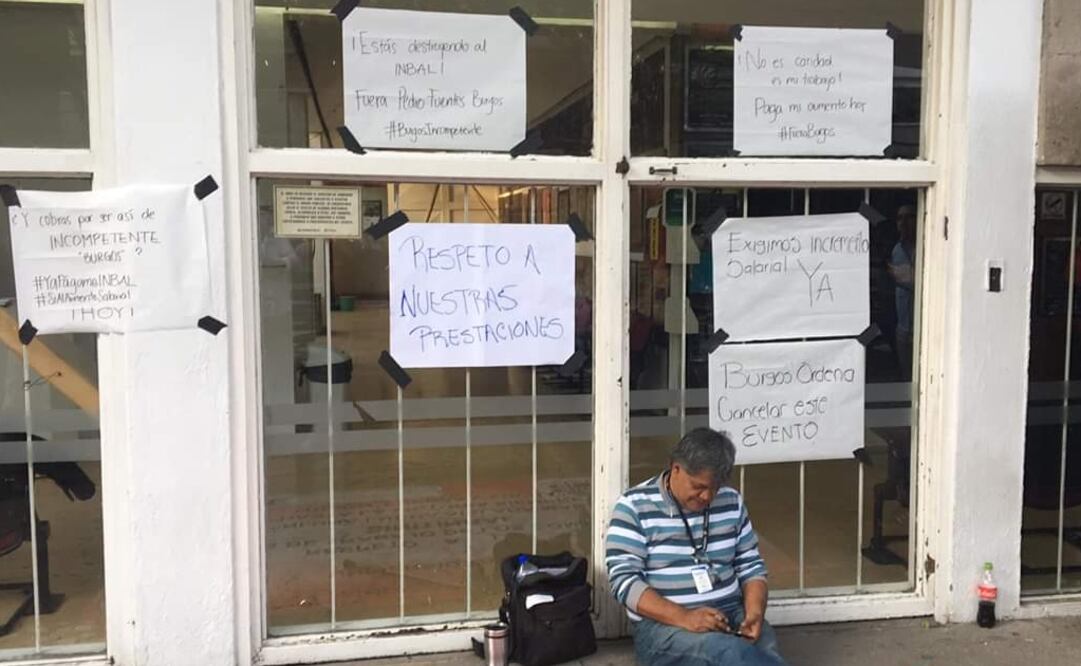 ¡Estás destruyendo al
INBAL!
Fuera Pedro Fuentes Burgos
#BurgosIncompetente
¡No es caridad
es mi trabajo!
Paga mi aumento hoy
#FueraBurgos
¿Y cobras por ser así de
INCOMPETENTE
"BURGOS"?
#YaPágameINBAL
#SiAlAumentoSalarial
¡HOY!
RESPETO A
NUESTRAS
PRESTACIONES
Exigimos Incremento
Salarial YA
Burgos Ordena
Cancelar este
EVENTO